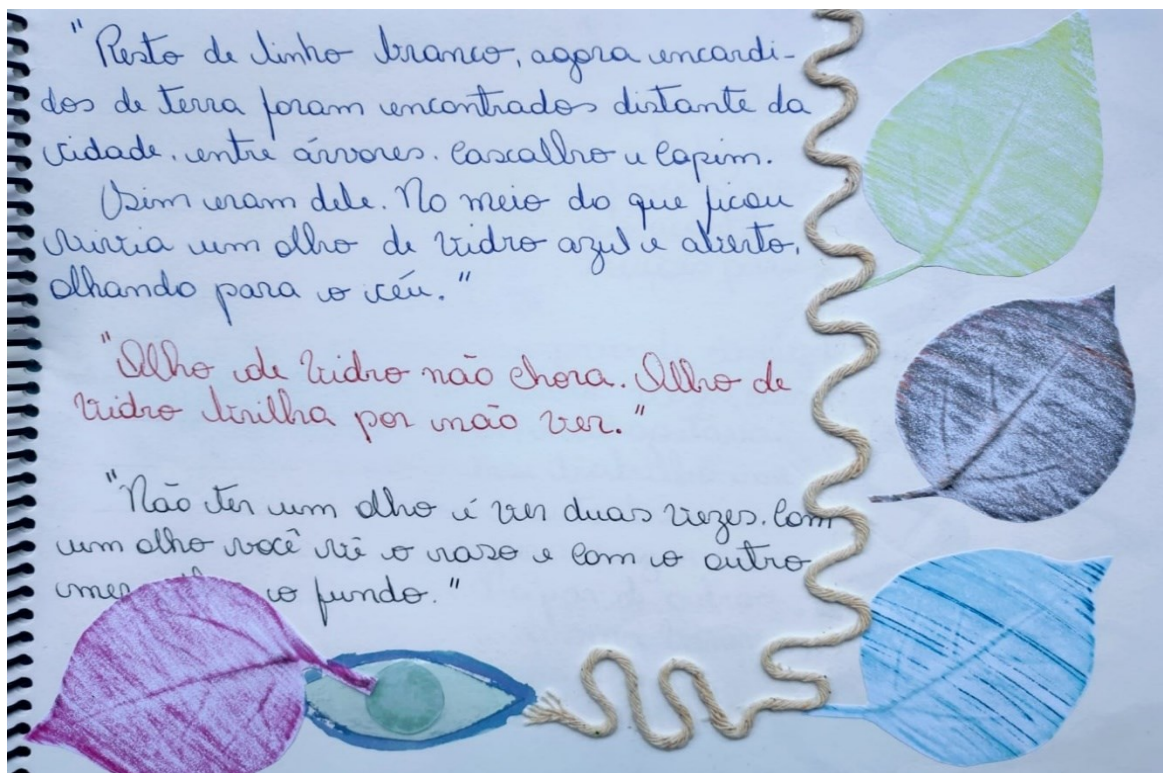 "Resto de linho branco, agora encardi-
dos de terra foram encontrados distante da
cidade, entre árvores. Cascalho e Capim.
Sim eram dele. No meio do que ficou
existia um olho de vidro azul e aberto,
olhando para o céu."
"Olho de Vidro não chora. Olho de
Vidro brilha por não ver."
"Não ter um olho é ver duas vezes. Com
um olho você vê o raso e com o outro
o fundo."